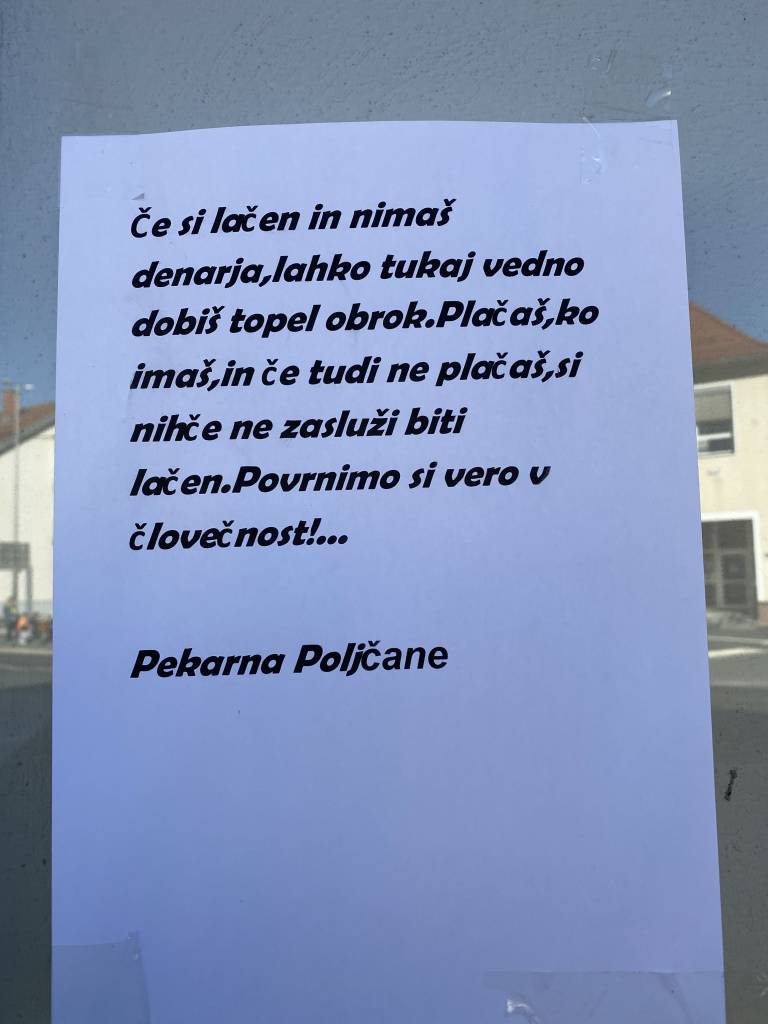 Če si lačen in nimaš
denarja,lahko tukaj vedno
dobiš topel obrok.Plačaš,ko
imaš,in če tudi ne plačaš,si
nihče ne zasluži biti
lačen.Povrnimo si vero v
človečnost!...
Pekarna Poljčane